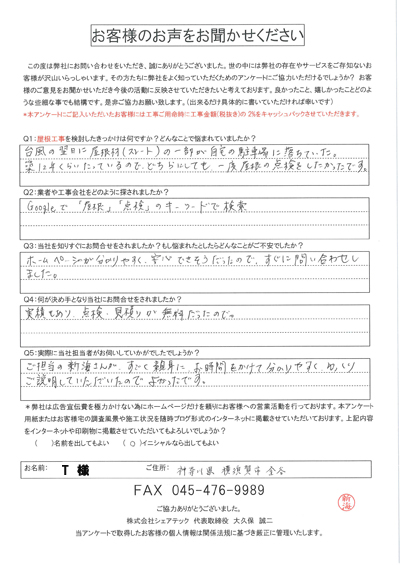 お客様のお声をお聞かせください
この度は弊社にお問い合わせをいただき、誠にありがとうございました。世の中には弊社の存在やサービスをご存知ないお
客様が沢山いらっしゃいます。その方たちに弊社をよく知っていただくためのアンケートにご協力いただけるでしょうか? お客
様のご意見をお聞かせいただき今後の活動に反映させていただきたいと考えております。良かったこと、嬉しかったことどのよ
うな些細な事でも結構です。是非ご協力お願い致します。(出来るだけ具体的に書いていただければ幸いです)
*本アンケートにご記入いただいたお客様には工事ご用命時に工事金額(税抜き)の2%をキャッシュバックさせていただきます。
Q1:屋根工事を検討したきっかけは何ですか?どんなことで悩まれていましたか?
台風の翌日に屋根材(スレート)の一部が自宅の駐車場に落ちていた。
てっているので、どちらにしても一度屋根の点検をしたかったです。
Q2:業者や工事会社をどのように探されましたか?
Googleで「屋根」「点検」のキーワードで検索
Q3:当社を知りすぐにお問合せをされましたか?もし悩まれたとしたらどんなことがご不安でしたか?
ホームページが分かりやすく、安心できそうだったので、すぐに問い合わせし
ました。
Q4:何が決め手となり当社にお問合せをされましたか?
実績もあり、点検・見積りが無料だったので。
Q5:実際に当社担当者がお伺いしていかがでしたでしょうか?
ご担当の新海さんが、すごく親身に、お時間をかけて分かりやすく、ゆっくり
ご説明していただいたのでよかったです。
*弊社は広告宣伝費を極力かけない為にホームページだけを頼りにお客様への営業活動を行っております。本アンケート
用紙またはお客様宅の調査風景や施工状況を随時ブログ形式のインターネットに掲載させていただいております。上記内容
をインターネットや印刷物に掲載させていただいてもよろしいでしょうか?
( )名前を出してもよい (○)イニシャルなら出してもよい
お名前: T 様 ご住所: 神奈川県 横須賀市 金谷
FAX 045-476-9989
新海
ご協力ありがとうございました。
株式会社シェアテック 代表取締役 大久保 誠二
当アンケートで取得したお客様の個人情報は関係法規に基づき厳正に管理いたします。